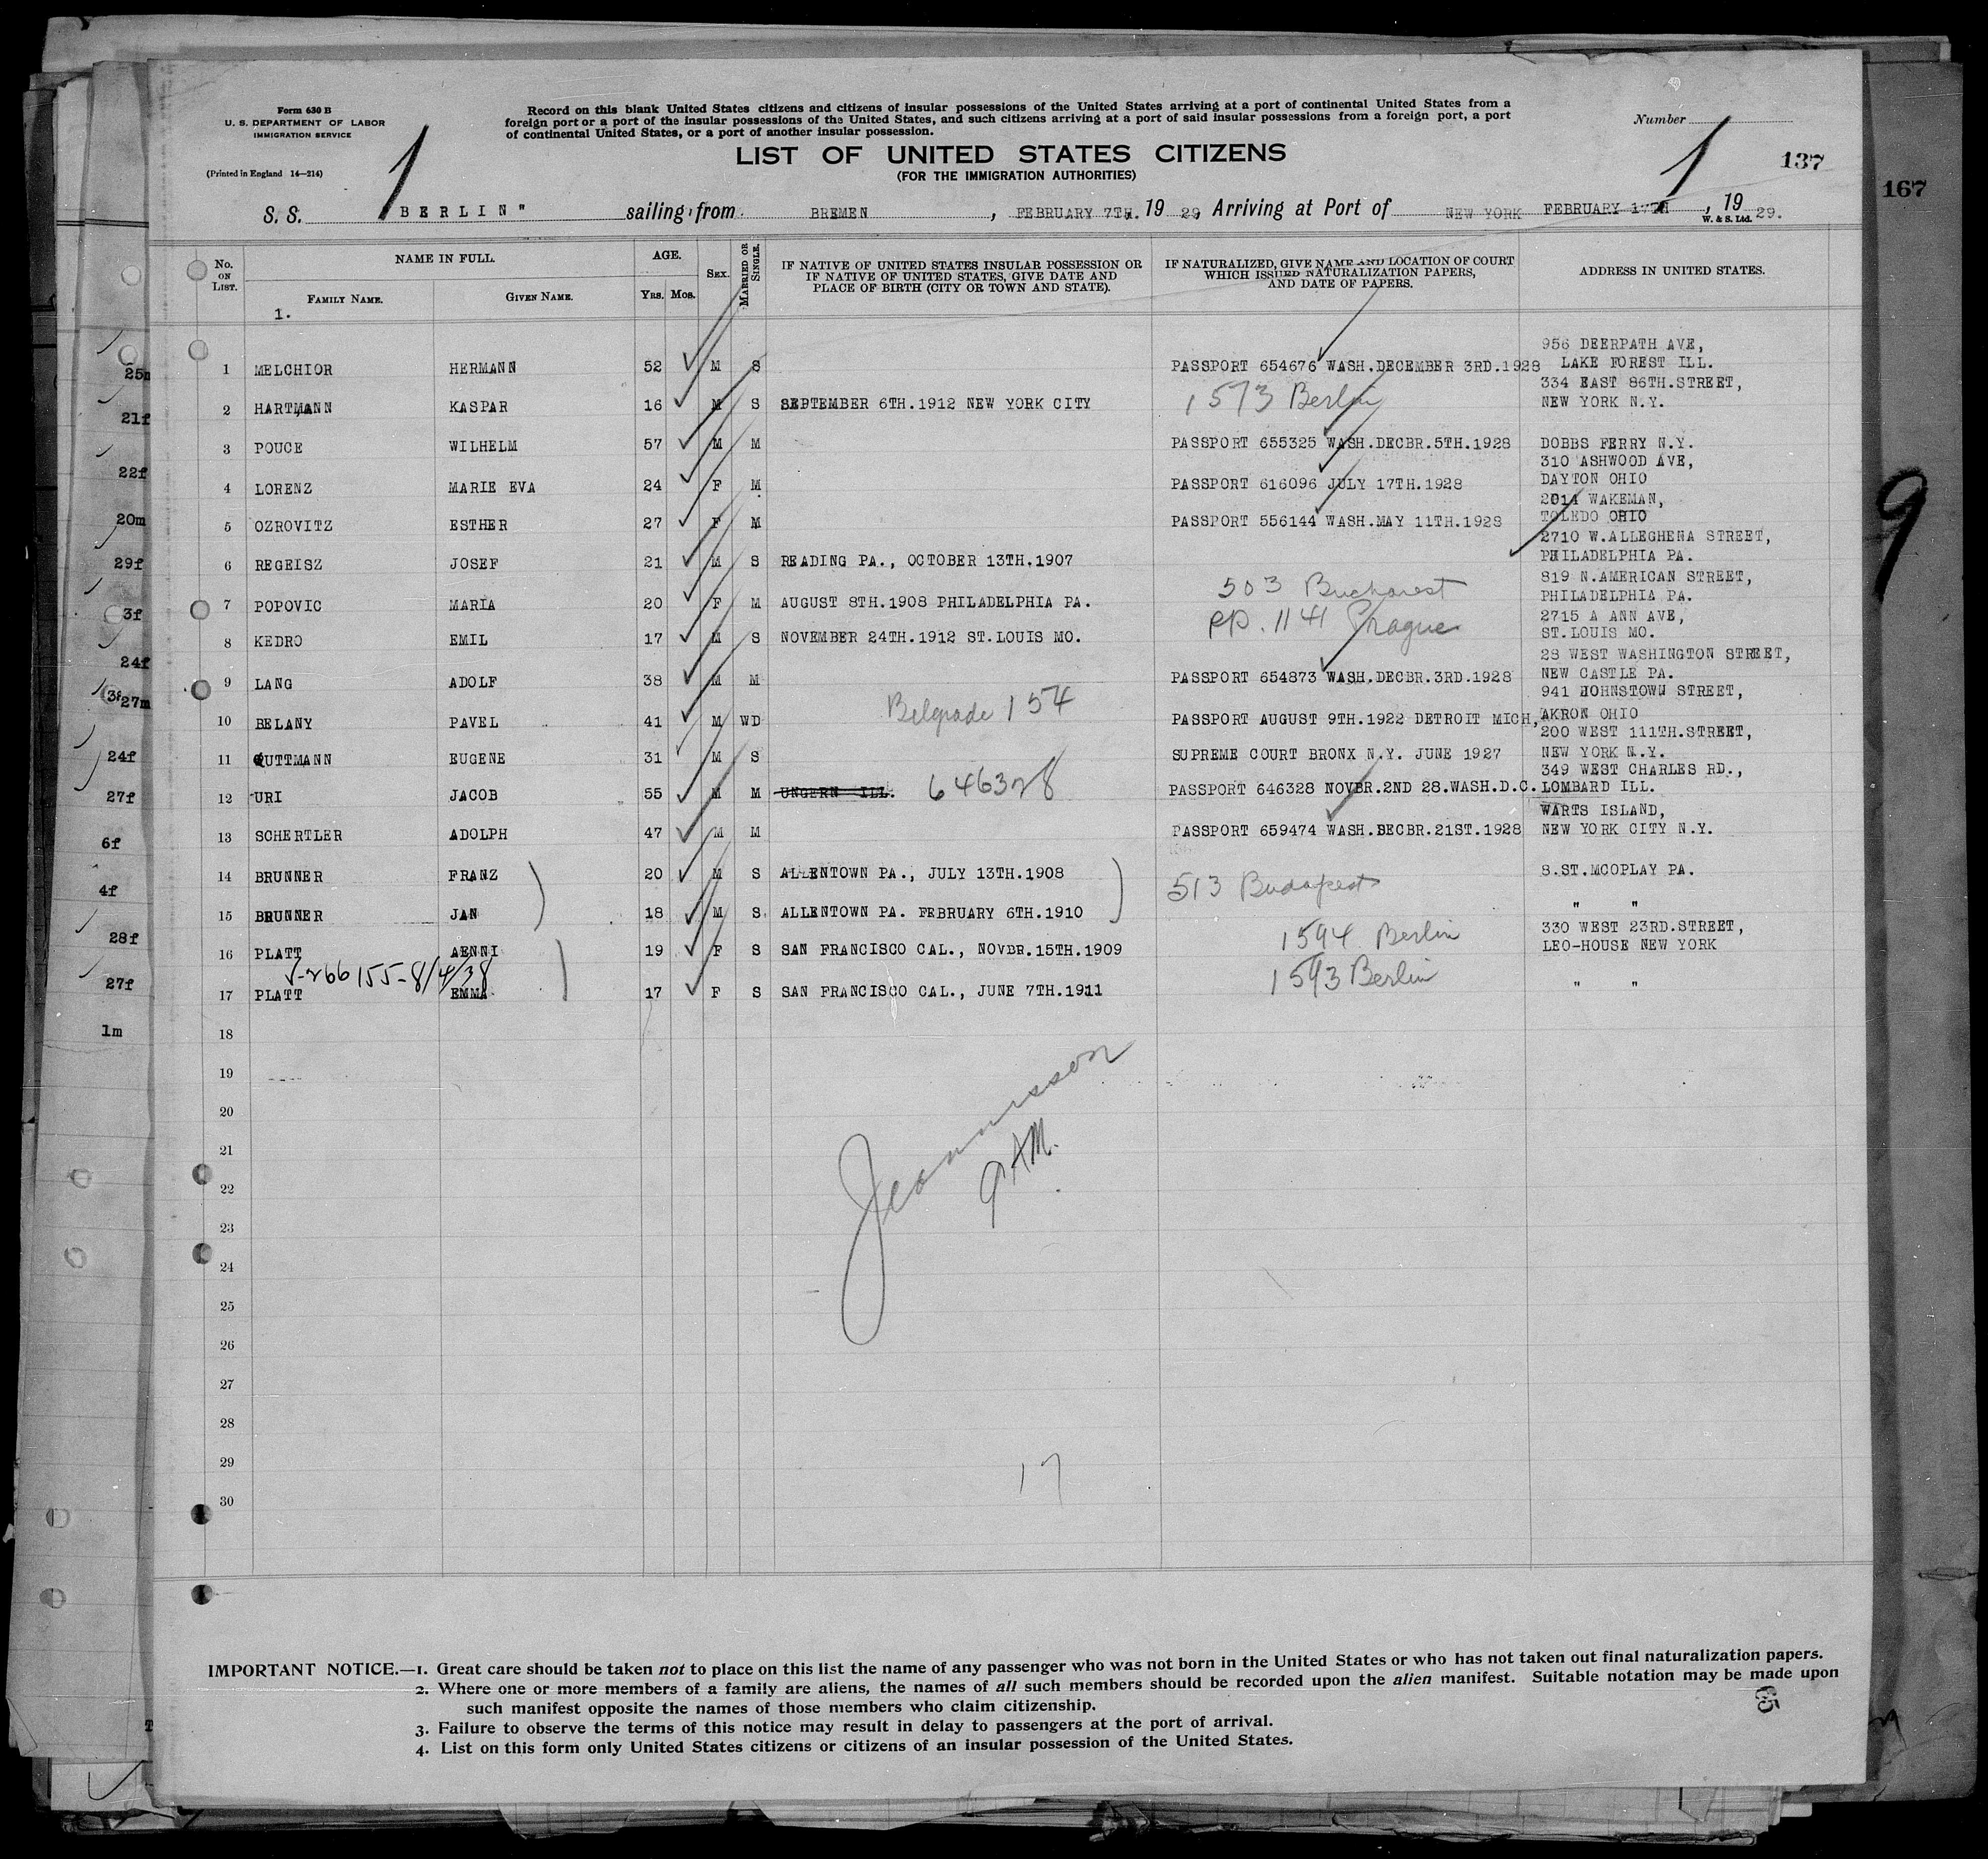 Form 630 B
U. S. DEPARTMENT OF LABOR
IMMIGRATION SERVICE
(Printed in England 14—214)
1
Record on this blank United States citizens and citizens of insular possessions of the United States arriving at a port of continental United States from a
foreign port or a port of the insular possessions of the United States, and such citizens arriving at a port of said insular possessions from a foreign port, a port
of continental United States, or a port of another insular possession.
LIST OF UNITED STATES CITIZENS
(FOR THE IMMIGRATION AUTHORITIES)
Number
1
137
167
S. S. BERLIN" sailing from BREMEN, FEBRUARY 7TH. 19 29, Arriving at Port of NEW YORK FEBRUARY 17TH, 19 29.
W. & S. Ltd.
No. ON LIST.
NAME IN FULL.
FAMILY NAME.
GIVEN NAME.
AGE.
YRS. MOS.
SEX.
MARRIED OR SINGLE.
IF NATIVE OF UNITED STATES INSULAR POSSESSION OR
IF NATIVE OF UNITED STATES, GIVE DATE AND
PLACE OF BIRTH (CITY OR TOWN AND STATE).
IF NATURALIZED, GIVE NAME AND LOCATION OF COURT
WHICH ISSUED NATURALIZATION PAPERS,
AND DATE OF PAPERS.
ADDRESS IN UNITED STATES.
1.
956 DEERPATH AVE,
1 MELCHIOR HERMANN 52 M S PASSPORT 654676 WASH.DECEMBER 3RD.1928 LAKE FOREST ILL.
334 EAST 86TH.STREET,
2 HARTMANN KASPAR 16 M S SEPTEMBER 6TH.1912 NEW YORK CITY 1573 Berlin NEW YORK N.Y.
3 POUCE WILHELM 57 M M PASSPORT 655325 WASH.DECBR.5TH.1928 DOBBS FERRY N.Y.
310 ASHWOOD AVE,
4 LORENZ MARIE EVA 24 F M PASSPORT 616096 JULY 17TH.1928 DAYTON OHIO
2014 WAKEMAN,
5 OZROVITZ ESTHER 27 F M PASSPORT 556144 WASH.MAY 11TH.1928 TOLEDO OHIO
2710 W.ALLEGHENA STREET,
6 REGEISZ JOSEF 21 M S READING PA., OCTOBER 13TH.1907 PHILADELPHIA PA.
819 N.AMERICAN STREET,
7 POPOVIC MARIA 20 F M AUGUST 8TH.1908 PHILADELPHIA PA. 503 Bucharest PHILADELPHIA PA.
2715 A ANN AVE,
8 KEDRO EMIL 17 M S NOVEMBER 24TH.1912 ST.LOUIS MO. pp. 1141 Prague ST.LOUIS MO.
28 WEST WASHINGTON STREET,
9 LANG ADOLF 38 M M PASSPORT 654873 WASH.DECBR.3RD.1928 NEW CASTLE PA.
941 HOHNSTOWN STREET,
10 BELANY PAVEL 41 M WD Belgrade 154 PASSPORT AUGUST 9TH.1922 DETROIT MICH, AKRON OHIO
200 WEST 111TH.STREET,
11 GUTTMANN EUGENE 31 M S SUPREME COURT BRONX N.Y. JUNE 1927 NEW YORK N.Y.
349 WEST CHARLES RD.,
12 URI JACOB 55 M M UNGERN ILL. 646328 PASSPORT 646328 NOVBR.2ND 28.WASH.D.C. LOMBARD ILL.
WARTS ISLAND,
13 SCHERTLER ADOLPH 47 M M PASSPORT 659474 WASH.DECBR.21ST.1928 NEW YORK CITY N.Y.
14 BRUNNER FRANZ 20 M S ALLENTOWN PA., JULY 13TH.1908 513 Budapest S.ST.MCOPLAY PA.
15 BRUNNER JAN 18 M S ALLENTOWN PA. FEBRUARY 6TH.1910 " "
330 WEST 23RD.STREET,
16 PLATT AENNI 19 F S SAN FRANCISCO CAL., NOVBR.15TH.1909 1594 Berlin LEO-HOUSE NEW YORK
V-266155-8/4/38
17 PLATT EMMA 17 F S SAN FRANCISCO CAL., JUNE 7TH.1911 1593 Berlin " "
18
19
20
21
22
23
24
25
26
27
28
29
30
9 AM.
17
9
25m
21f
22f
20m
29f
3f
24f
27m
24f
27f
6f
4f
28f
27f
1m
IMPORTANT NOTICE.—1. Great care should be taken not to place on this list the name of any passenger who was not born in the United States or who has not taken out final naturalization papers.
2. Where one or more members of a family are aliens, the names of all such members should be recorded upon the alien manifest. Suitable notation may be made upon
such manifest opposite the names of those members who claim citizenship.
3. Failure to observe the terms of this notice may result in delay to passengers at the port of arrival.
4. List on this form only United States citizens or citizens of an insular possession of the United States.